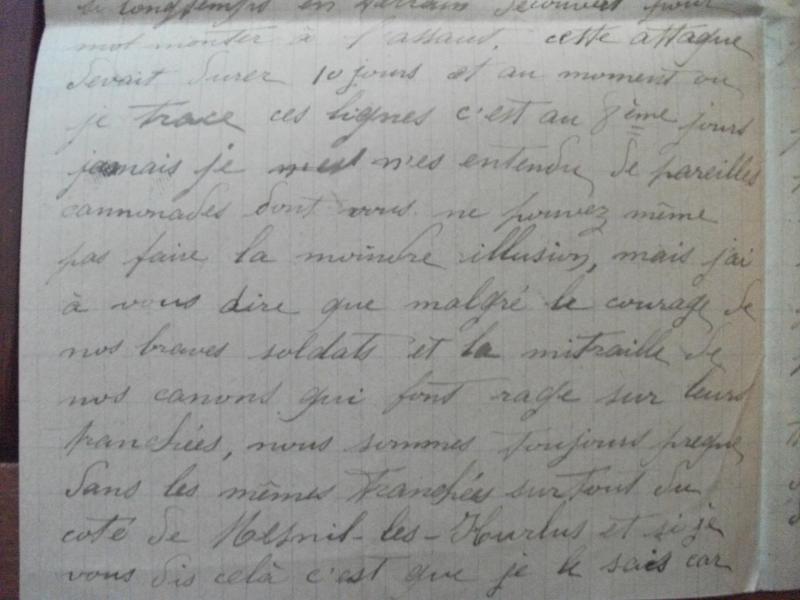 si longtemps en terrain découvert pour
mot monter à l'assaut, cette attaque
devait durer 10 jours et au moment ou
je trace ces lignes c'est au 8ème jours
jamais je n'es entendu de pareilles
cannonades dont vous ne pouvez même
pas faire la moindre illusion, mais j'ai
à vous dire que malgré le courage de
nos braves soldats et la mitraille de
nos canons qui font rage sur leurs
tranchées, nous sommes toujours preque
dans les mêmes tranchées surtout du
coté de Mesnil-les-Hurlus et si je
vous dis celà c'est que je le sais car